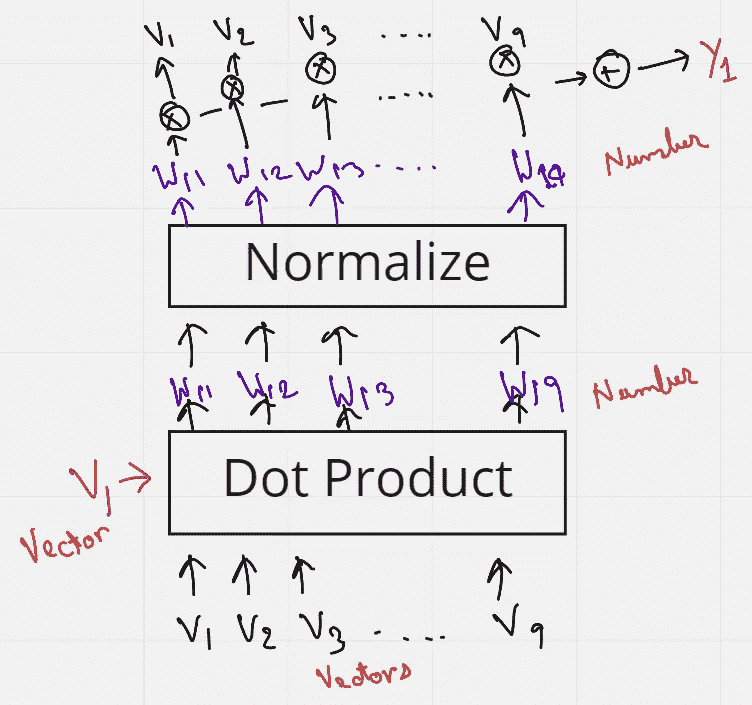 V1 V2 V3 .... V9
Y1
Number
W11 W12 W13 .... W19
Normalize
W11 W12 W13 W19
Number
V1
Dot Product
Vector
V1 V2 V3 ..... V9
Vectors